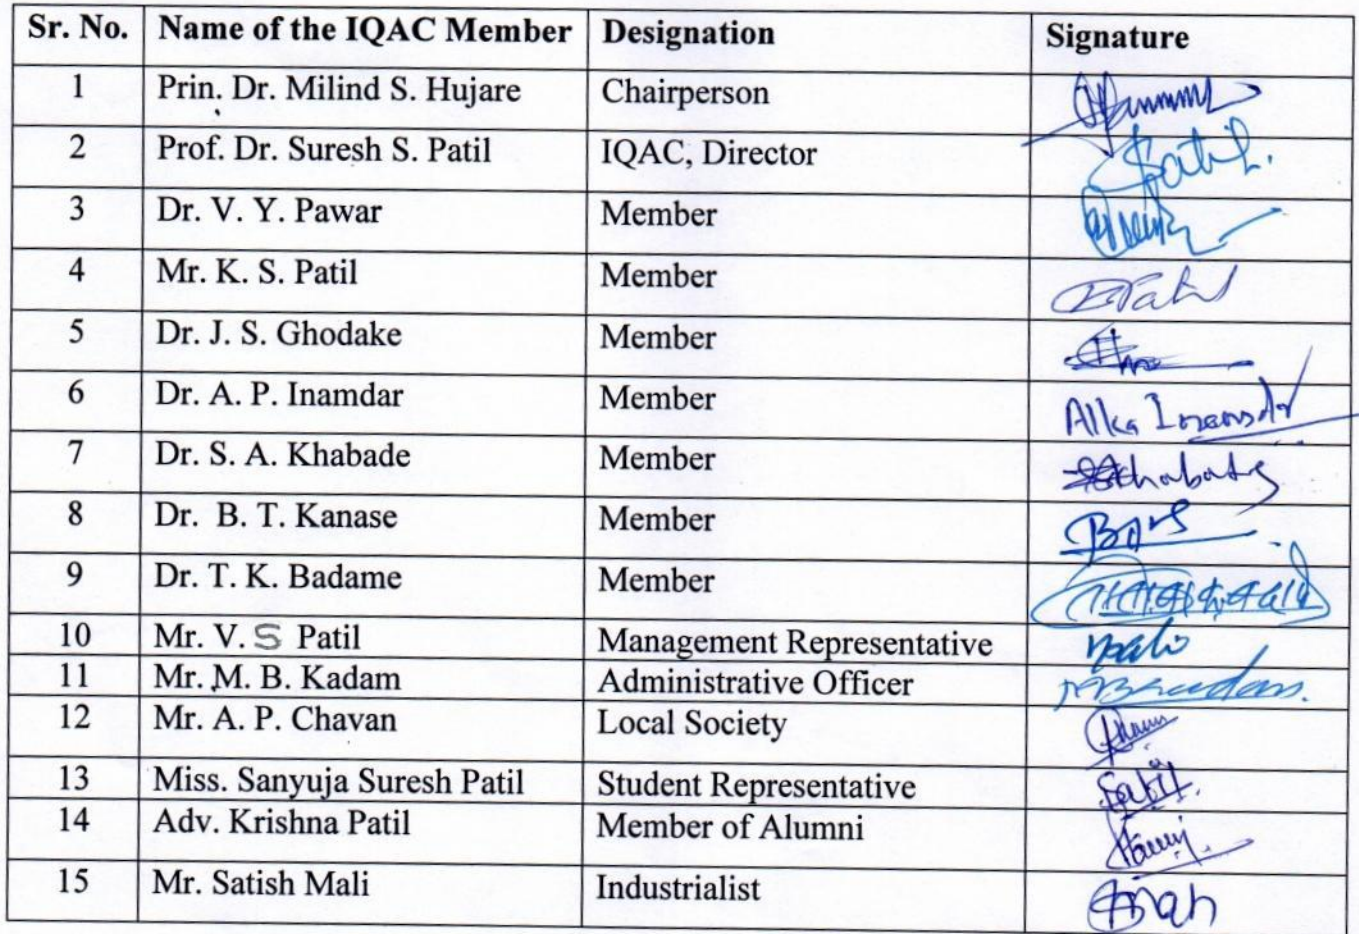 Sr. No. Name of the IQAC Member Designation Signature
1 Prin. Dr. Milind S. Hujare Chairperson
2 Prof. Dr. Suresh S. Patil IQAC, Director
3 Dr. V. Y. Pawar Member
4 Mr. K. S. Patil Member
5 Dr. J. S. Ghodake Member
6 Dr. A. P. Inamdar Member Alka Inamdar
7 Dr. S. A. Khabade Member
8 Dr. B. T. Kanase Member
9 Dr. T. K. Badame Member
10 Mr. V. S Patil Management Representative
11 Mr. M. B. Kadam Administrative Officer
12 Mr. A. P. Chavan Local Society
13 Miss. Sanyuja Suresh Patil Student Representative
14 Adv. Krishna Patil Member of Alumni
15 Mr. Satish Mali Industrialist